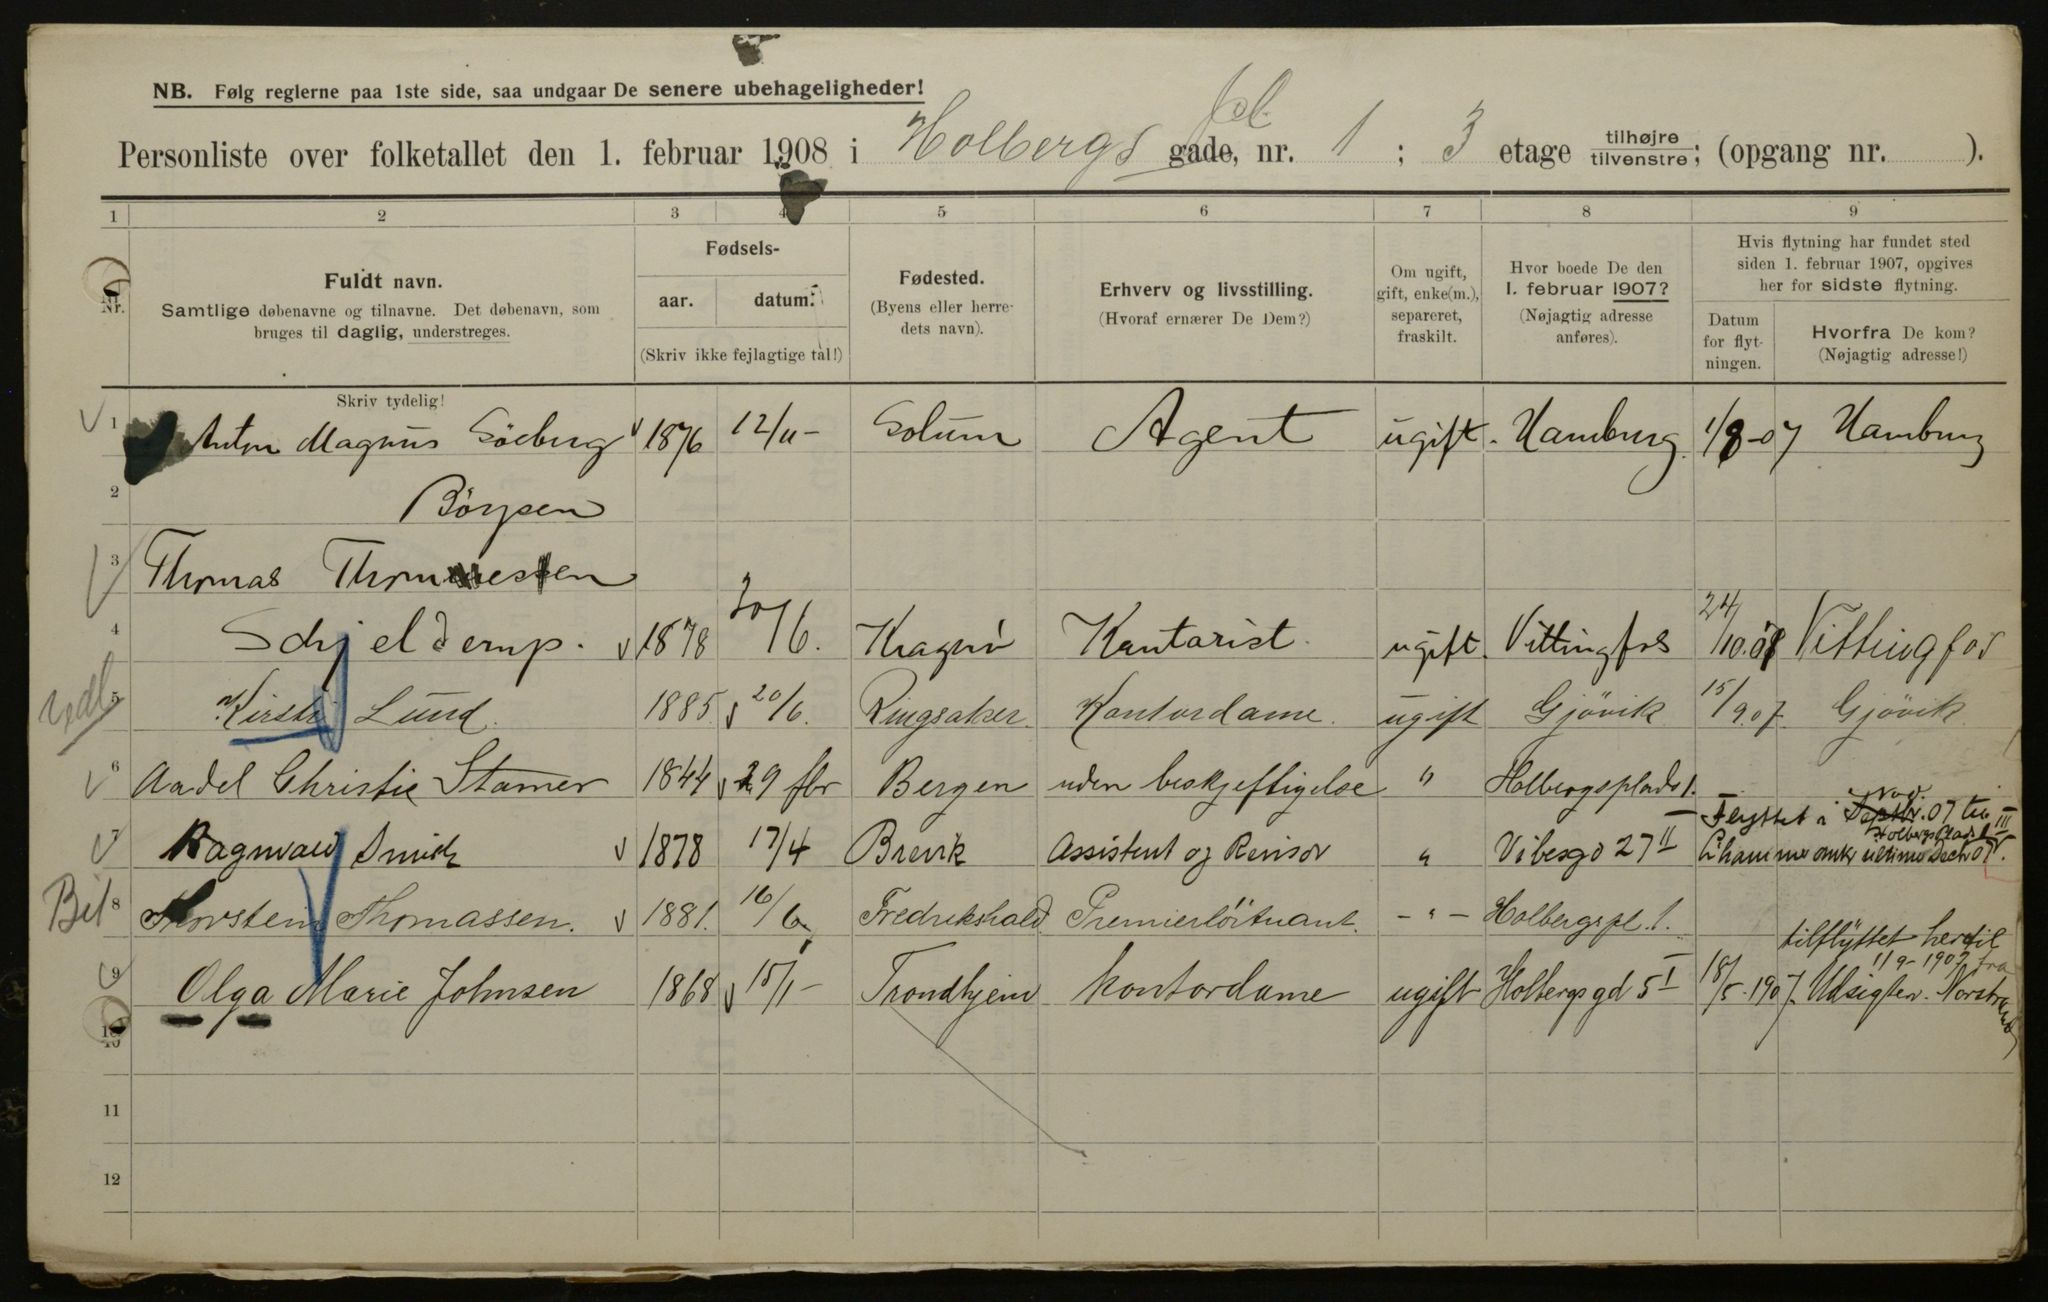 NB. Følg reglerne paa 1ste side, saa undgaar De senere ubehageligheder!
Personliste over folketallet den 1. februar 1908 i Holbergs gade, pl. nr. 1 ; 3 etage tilhøjre tilvenstre; (opgang nr. ).
1 2 3 4 5 6 7 8 9
Nr.
Fuldt navn.
Samtlige døbenavne og tilnavne. Det døbenavn, som
bruges til daglig, understreges.
Skriv tydelig!
Fødsels-
aar. datum.
(Skriv ikke fejlagtige tal!)
Fødested.
(Byens eller herre-
dets navn).
Erhverv og livsstilling.
(Hvoraf ernærer De Dem?)
Om ugift,
gift, enke(m.),
separeret,
fraskilt.
Hvor boede De den
1. februar 1907?
(Nøjagtig adresse
anføres).
Hvis flytning har fundet sted
siden 1. februar 1907, opgives
her for sidste flytning.
Datum
for flyt-
ningen.
Hvorfra De kom?
(Nøjagtig adresse!)
1 Anton Magnus Söeberg 1876 12/11- Solum Agent ugift. Hamburg 1/8-07 Hamburg
2 Börjsen
3 Thomas Thommesen
4 Schjelderup. 1878 30/6. Kragerö Kontorist. ugift. Vittingfos 24/10.07 Vittingfos
5 Kirsti Lund. 1885. 20/6. Ringsaker Kontordame. ugift Gjövik 15/9.07. Gjövik
6 Aadel Christie Stamer 1844 29 fbr Bergen uden beskjeftigelse " Holbergsplads 1.
7 Ragnvald Smith 1878 17/4 Brevik Assistent og Revisor " Vibesgd 27 II Flyttet i Septbr. Nov. 07 til
Holbergs Plads 1 III
ultimo Dectr 07.
8 Thorstein Thomassen. 1881. 16/6 Fredrikshald Premierlöitnant. - " - Holbergspl. 1.
9 Olga Marie Johnsen 1868 15/1- Trondhjem Kontordame ugift Holbergsgd 5 I 18/5.1907. tilflyttet hertil
11 9-1907 fra
Udsigten. Norstrand
10
11
12